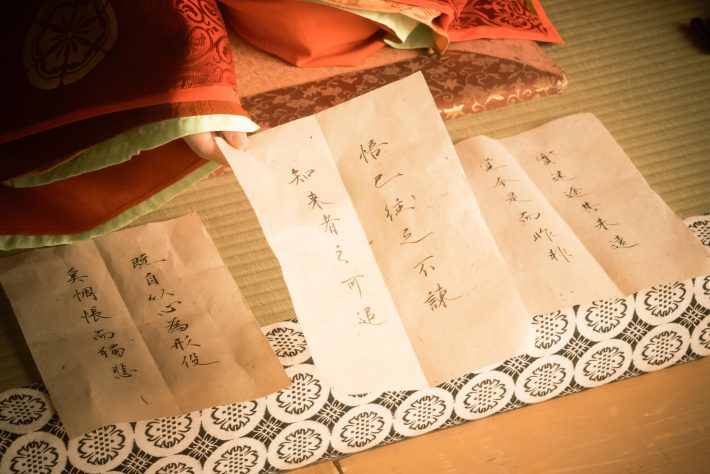 既自以心為形役
奚惆悵而獨悲
悟已往之不諫
知来者之可追
實迷途其未遠
覚今是而昨非